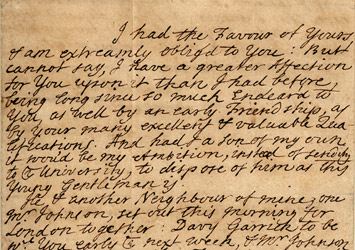 I had the Favour of Yours
& am extreamly obliged to You : But
cannot say, I have a greater Affection
for You upon it than I had before,
being long since so much Endeard to
You, as well by an early Friendship, as
by Your many excellent & valuable Qua
lifications. And had I a son of my own
it would be my Ambition, instead of sending
to University, to dispose of him as this
Young Gentleman is.
He & another Neighbour of mine one
Mr Johnson, set out this morning for
London together: Davy Garrick to be
wth You early to next week, & Mr Johnson